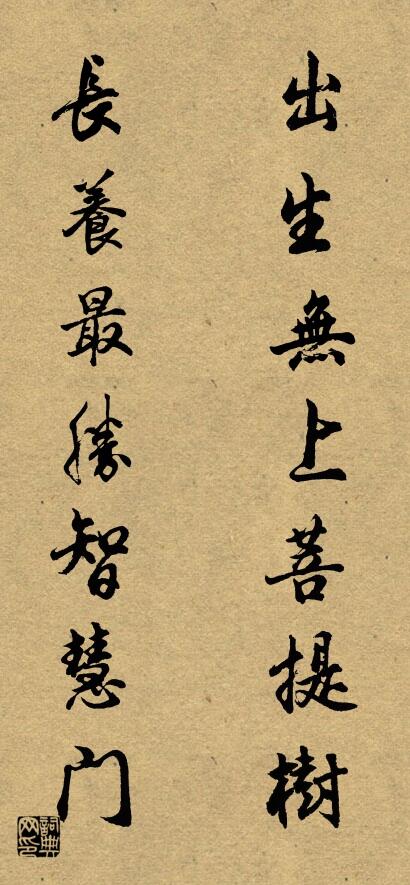 出生無上菩提樹
長養最勝智慧门
詞典网印